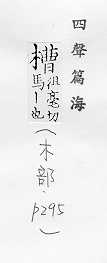 四聲篇海
槽徂毫切馬丨也(木部.p295)